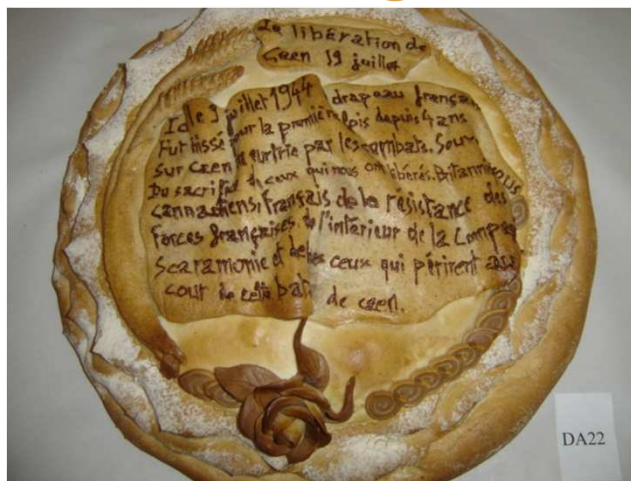 La libération de
Caen 19 juillet
Ici le 9 juillet 1944 drapeau français
Fut hissé pour la première fois depuis 4 ans
sur Caen meurtrie par les combats. Souv
Du sacrifice de ceux qui nous ont libérés. Britanniques
cannadiens, français de la résistance des
forces françaises de l'intérieur de la Compa
Scaramonie et de ceux qui périrent au
cour de cette bat de caen.
DA22